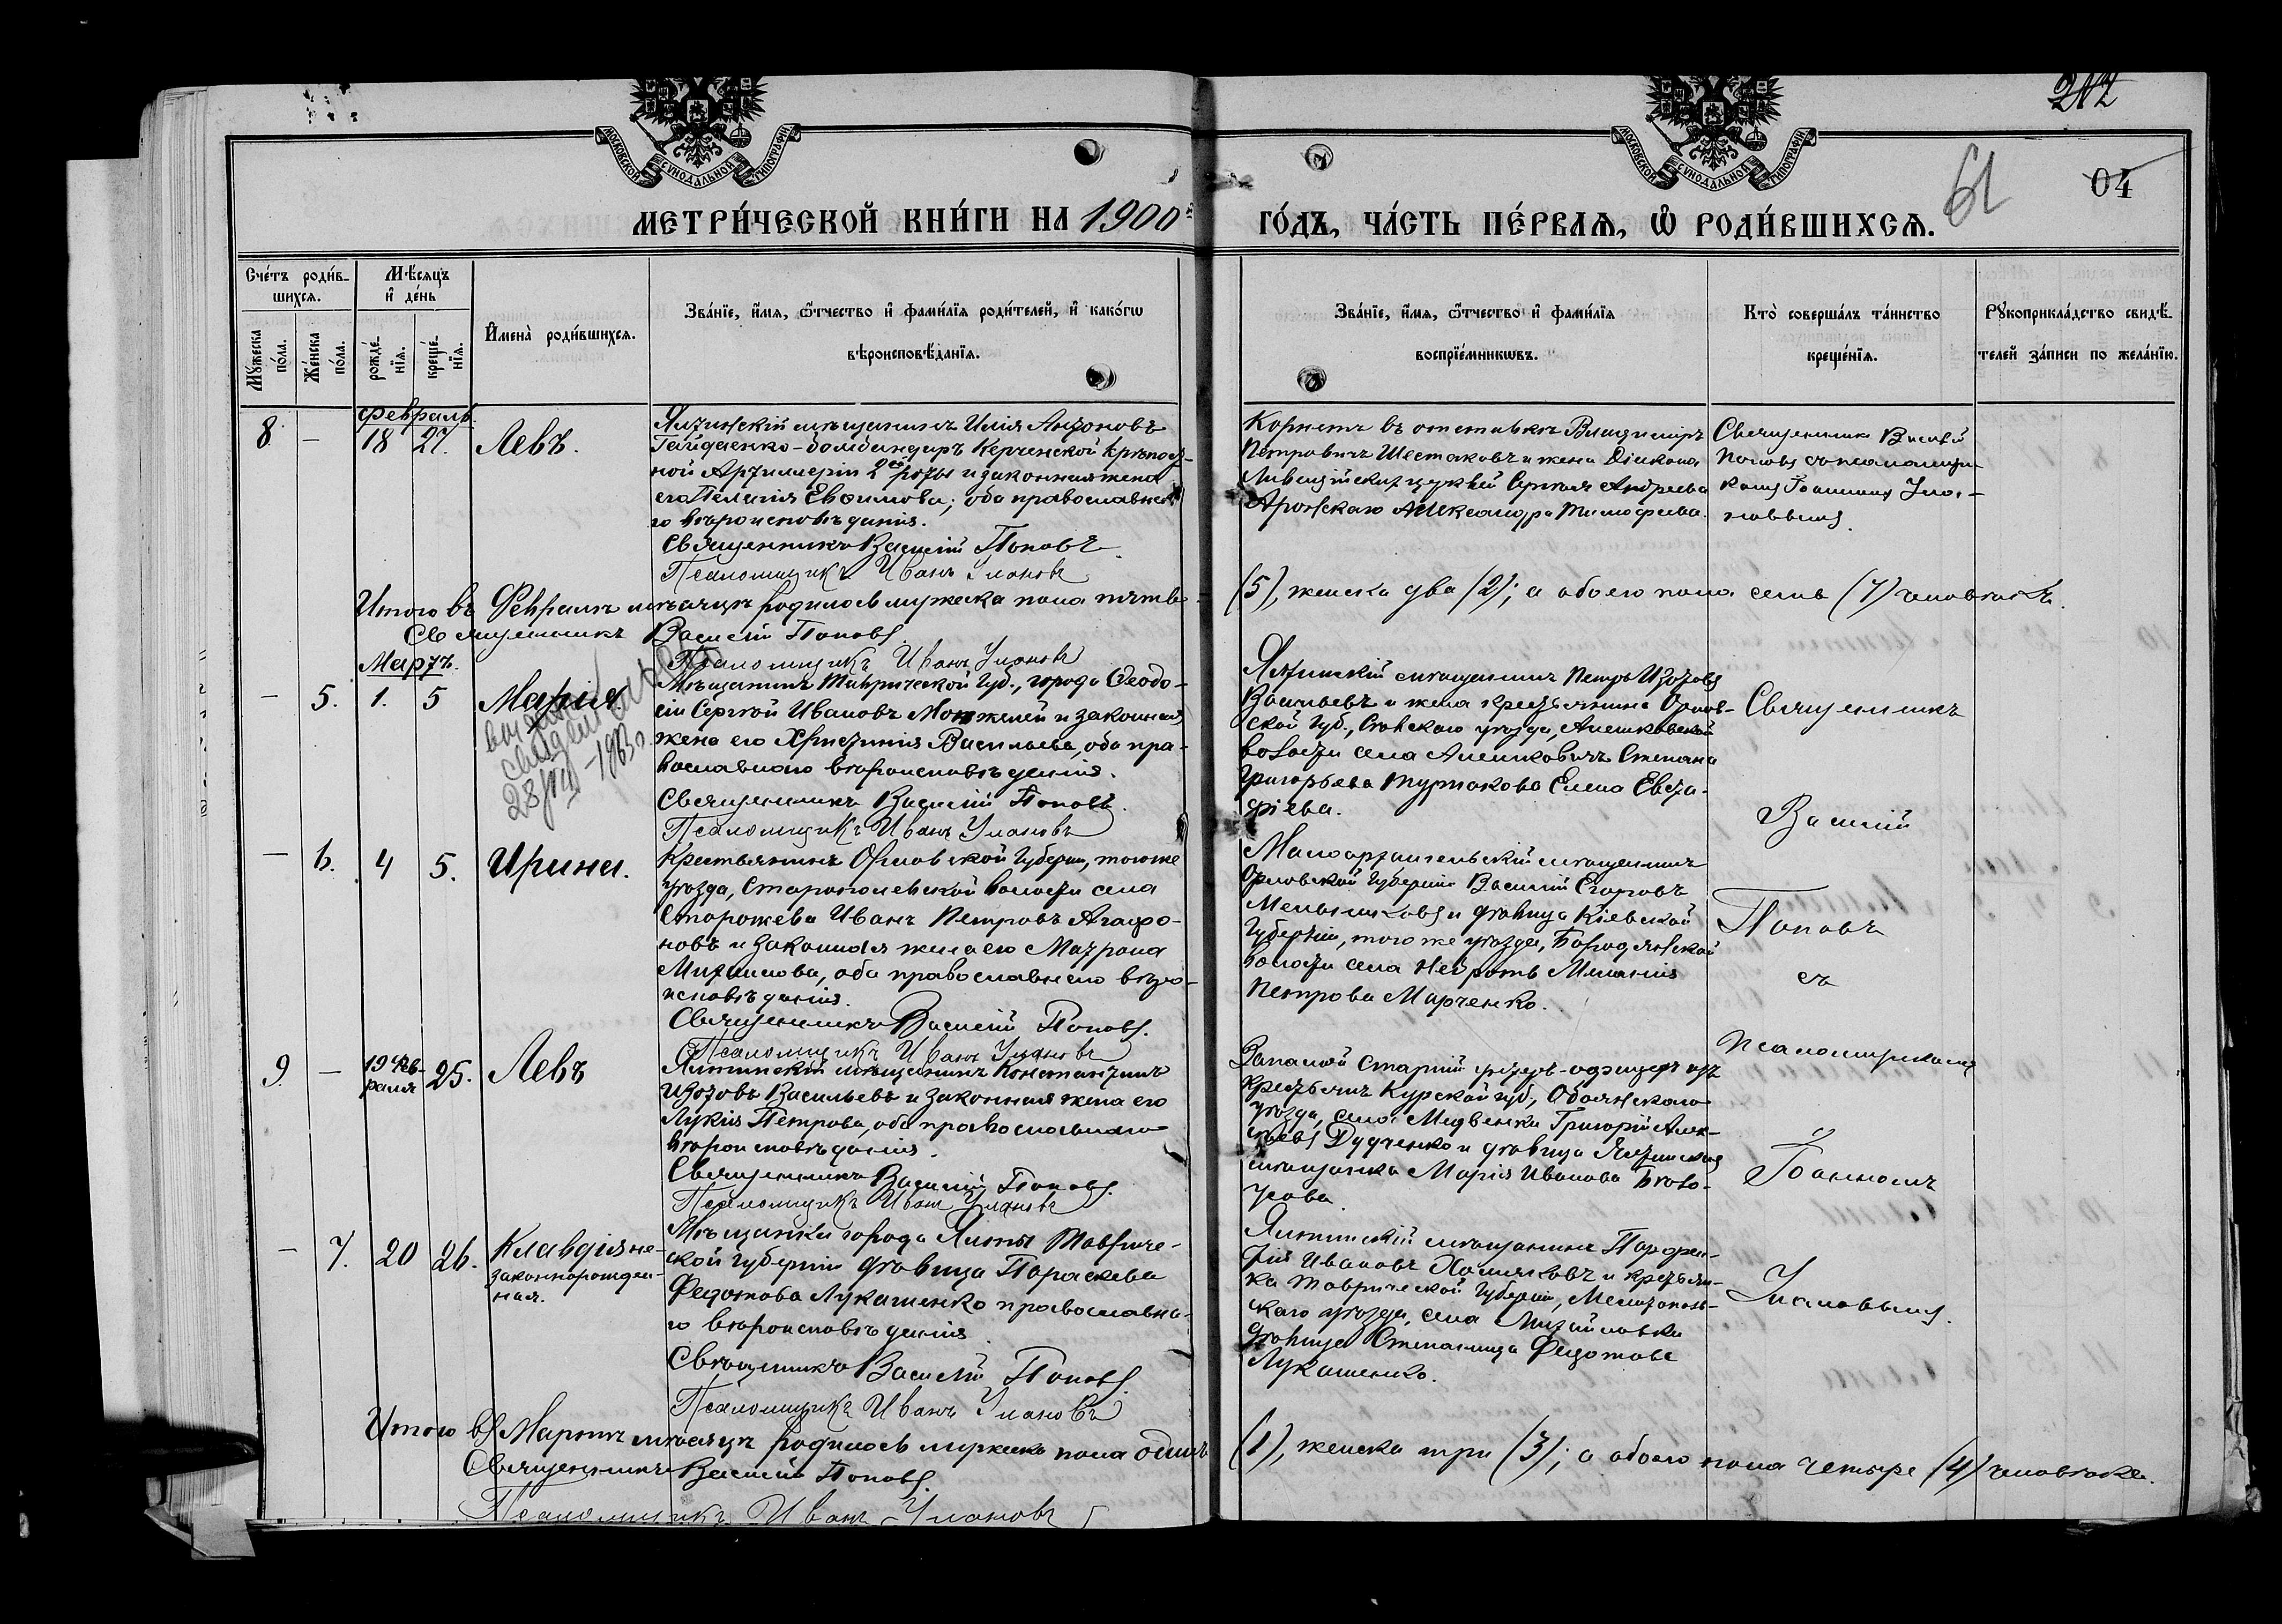 МОСКОВСКОЙ СѴНОДАЛЬНОЙ ТИПОГРАФІИ
МОСКОВСКОЙ СѴНОДАЛЬНОЙ ТИПОГРАФІИ
61
04
МЕТРИ́ЧЕСКОЙ КНИ́ГИ НА 1900
ГО́ДЪ, ЧА́СТЬ ПЕ́РВАѦ, Ѡ҆ РОДИ́ВШИХСѦ.
Сче́тъ роди́в-
шихсѧ.
Мꙋ́жеска по́ла.
Же́нска по́ла.
Мѣ́сѧцъ
и҆ де́нь
рожде́-
нїѧ.
креще́-
нїѧ.
И҆мена̀ роди́вшихсѧ.
Зва́нїе, и҆́мѧ, ѻ҆́тчество и҆ фами́лїѧ роди́телей, и҆ како́гѡ
вѣроисповѣ́данїѧ.
Зва́нїе, и҆́мѧ, ѻ҆́тчество и҆ фами́лїѧ
воспрїе́мникѡвъ.
Кто̀ соверша́лъ та́инство
креще́нїѧ.
Рꙋкоприкла́дство свидѣ́-
телей за́писи по жела́нїю.
Февраль
8. — 18 27. Левъ.
Ялтинскій мѣщанинъ Илія Антоновъ
Гайдаенко - бомбандиръ Керченской крѣпост-
ной Артиллеріи 2ой роты и законная жена
его Пелагія Евфимова; оба православна-
го вѣроисповѣданія.
Священникъ Василій Поповъ
Псаломщикъ Иванъ Улановъ
Корнетъ въ отставкѣ Владиміръ
Петровичъ Шестаковъ и жена Діакона
Ливадійскихъ церквей Сергія Андреева
Александра Тимофеева.
Священникъ Василій
Поповъ съ псаломщи-
комъ Іоанномъ Ула-
новымъ.
Итого въ Февралѣ мѣсяцѣ родилось мужеска пола пять
(5), женска два (2); а обоего пола семь (7) человѣкъ.
Священникъ Василій Поповъ.
Псаломщикъ Иванъ Улановъ
Мартъ.
— 5. 1. 5 Марія.
28/VII - 1963 г.
Мѣщанинъ Таврической Губ., города Ѳеодо-
сіи Сергѣй Ивановъ и законная
жена его Христинія Васильева, оба пра-
вославнаго вѣроисповѣданія.
Священникъ Василій Поповъ.
Псаломщикъ Иванъ Улановъ
Ялтинскій мѣщанинъ Петръ Изотовъ
Васильевъ и жена крестьянина Орлов-
ской Губ., Сѣвскаго уѣзда, Алешковской
волости села Алешковичъ Степана
Григорьева Елена Евста-
фіева.
Священникъ
Василій
Поповъ
съ
псаломщикомъ
Іоанномъ
Улановымъ.
— 6. 4 5. Ирина.
Крестьянинъ Орловской Губерніи, того же
уѣзда, Старопольской волости села
Сторожева Иванъ Петровъ Агафо-
новъ и законная жена его Матрона
Михаилова, оба православнаго вѣро-
исповѣданія.
Священникъ Василій Поповъ.
Псаломщикъ Иванъ Улановъ
Малоархангельскій мѣщанинъ
Орловской Губерніи Василій Егоровъ
Мельниковъ и дѣвица Кіевской
Губерніи, того же уѣзда, Бородянской
волости села Меланія
Петрова Марченко.
9. — 19 Фев-
раля 25. Левъ
Ялтинскій мѣщанинъ Константинъ
Изотовъ Васильевъ и законная жена его
Лукія Петрова, оба православнаго
вѣроисповѣданія.
Священникъ Василій Поповъ.
Псаломщикъ Иванъ Улановъ
Запасной старшій унтеръ-офицеръ изъ
крестьянъ Курской губ., Обоянскаго
уѣзда, села Медвенки Григорій Алек-
сѣевъ Дудченко и дѣвица Ялтинская
мѣщанка Марія Иванова Бѣло-
усова.
— 7. 20 26. Клавдія не-
законнорожден-
ная.
Мѣщанка города Ялты Тавриче-
ской Губерніи дѣвица Параскева
Федотова Лукашенко православна-
го вѣроисповѣданія.
Священникъ Василій Поповъ.
Псаломщикъ Иванъ Улановъ
Ялтинскій мѣщанинъ Парфен-
тій Ивановъ Холияковъ и крестьян-
ка Таврической Губерніи, Мелитополь-
скаго уѣзда, села Михайловки
дѣвица Степанида Федотова
Лукашенко.
Итого въ Мартѣ мѣсяцѣ родилось мужеска пола одинъ
(1), женска три (3); а обоего пола четыре (4) человѣка.
Священникъ Василій Поповъ.
Псаломщикъ Иванъ Улановъ